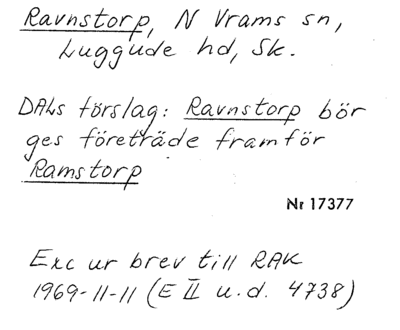 Ravnstorp, N Vrams sn,
Luggude hd, Sk.
DALs förslag: Ravnstorp bör
ges företräde framför
Ramstorp
Nr 17377
Exc ur brev till RAK
1969-11-11 (E II u.d. 4738)